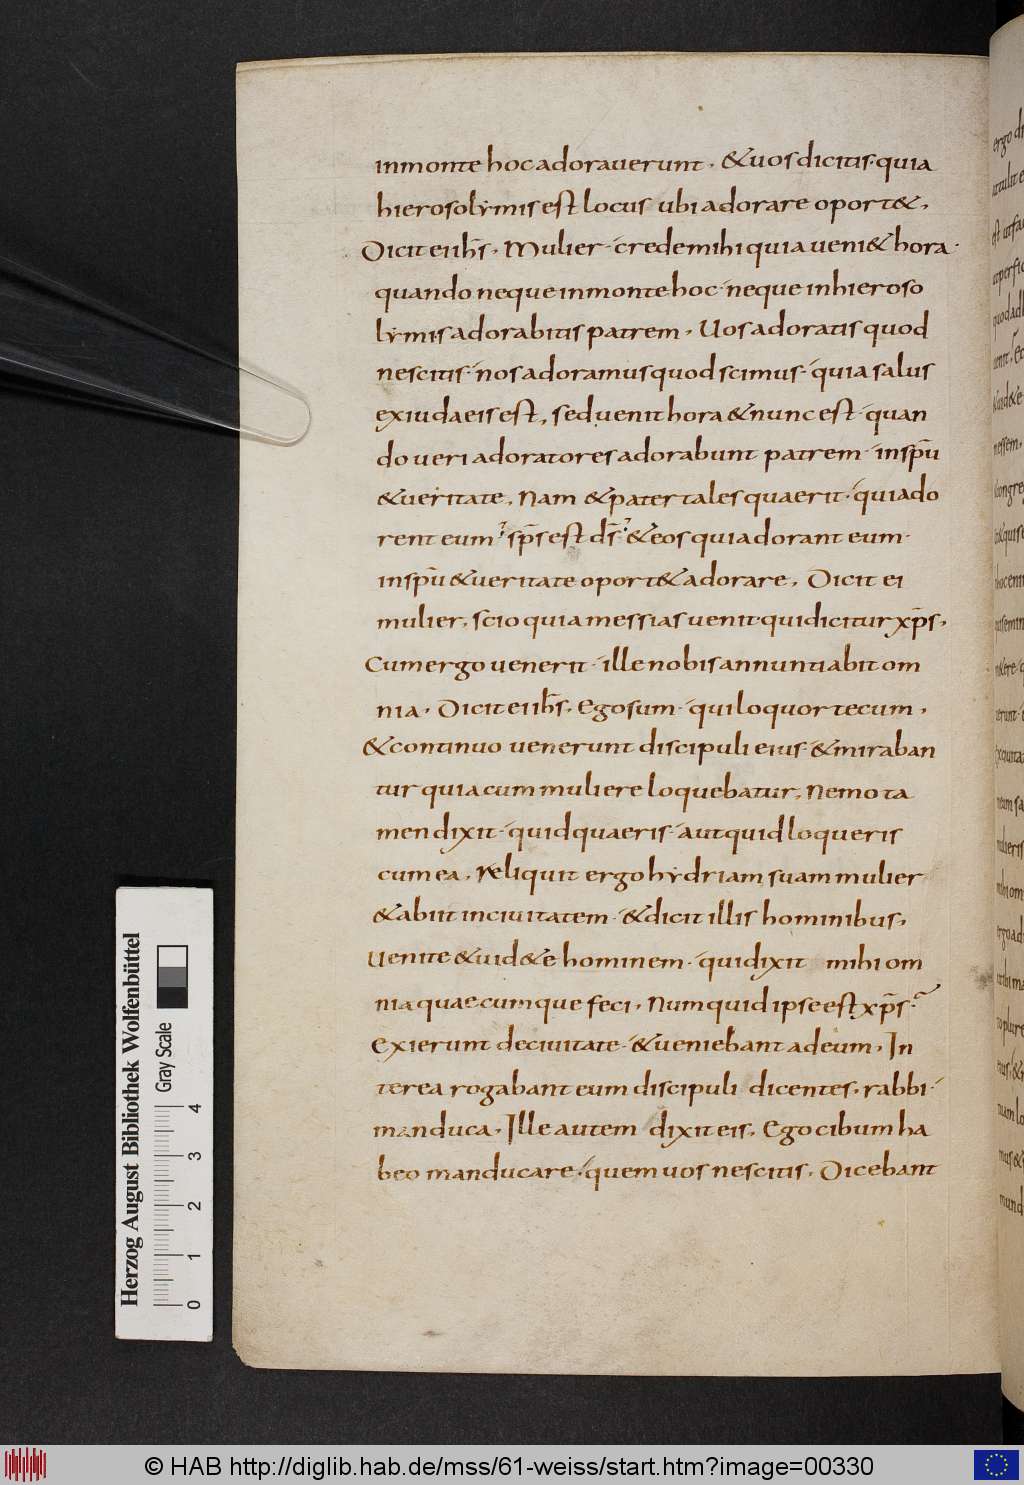 inmonte hoc adorauerunt · &uos dicitis · quia
hierosolymis est locus ubi adorare oport& ,
Dicit ei ih̅s , Mulier · crede mihi quia ueni& hora ·
quando neque inmonte hoc · neque inhieroso
lymis adorabitis patrem , Uos adoratis quod
nescitis · nos adoramus quod scimus · quia salus
exiudaeis est , sed uenit hora & nunc est · quan
do ueri adoratores adorabunt patrem · insp̅u
&ueritate , Nam & pater tales quaerit · qui ado
rent eum sp̅s est d̅s &eos qui adorant eum ·
insp̅u &ueritate oport& adorare , Dicit ei
mulier , scio quia messias uenit qui dicitur xp̅s ,
Cum ergo uenerit · ille nobis annuntiabit om
nia , Dicit ei ih̅s , Ego sum · qui loquor tecum ,
&continuo uenerunt discipuli eius · &miraban
tur quia cum muliere loquebatur , Nemo ta
men dixit · quid quaeris · aut quid loqueris
cum ea , Reliquit ergo hydriam suam mulier
&abiit inciuitatem · &dicit illis hominibus ,
Uenite &uid&e hominem · qui dixit mihi om
nia quaecumque feci , Numquid ipse est xp̅s
Exierunt deciuitate · &ueniebant adeum , In
terea rogabant eum discipuli dicentes , rabbi ·
manduca , Ille autem dixit eis , Ego cibum ha
beo manducare · quem uos nescitis , Dicebant
Herzog August Bibliothek Wolfenbüttel
Gray Scale
0 1 2 3 4
© HAB http://diglib.hab.de/mss/61-weiss/start.htm?image=00330